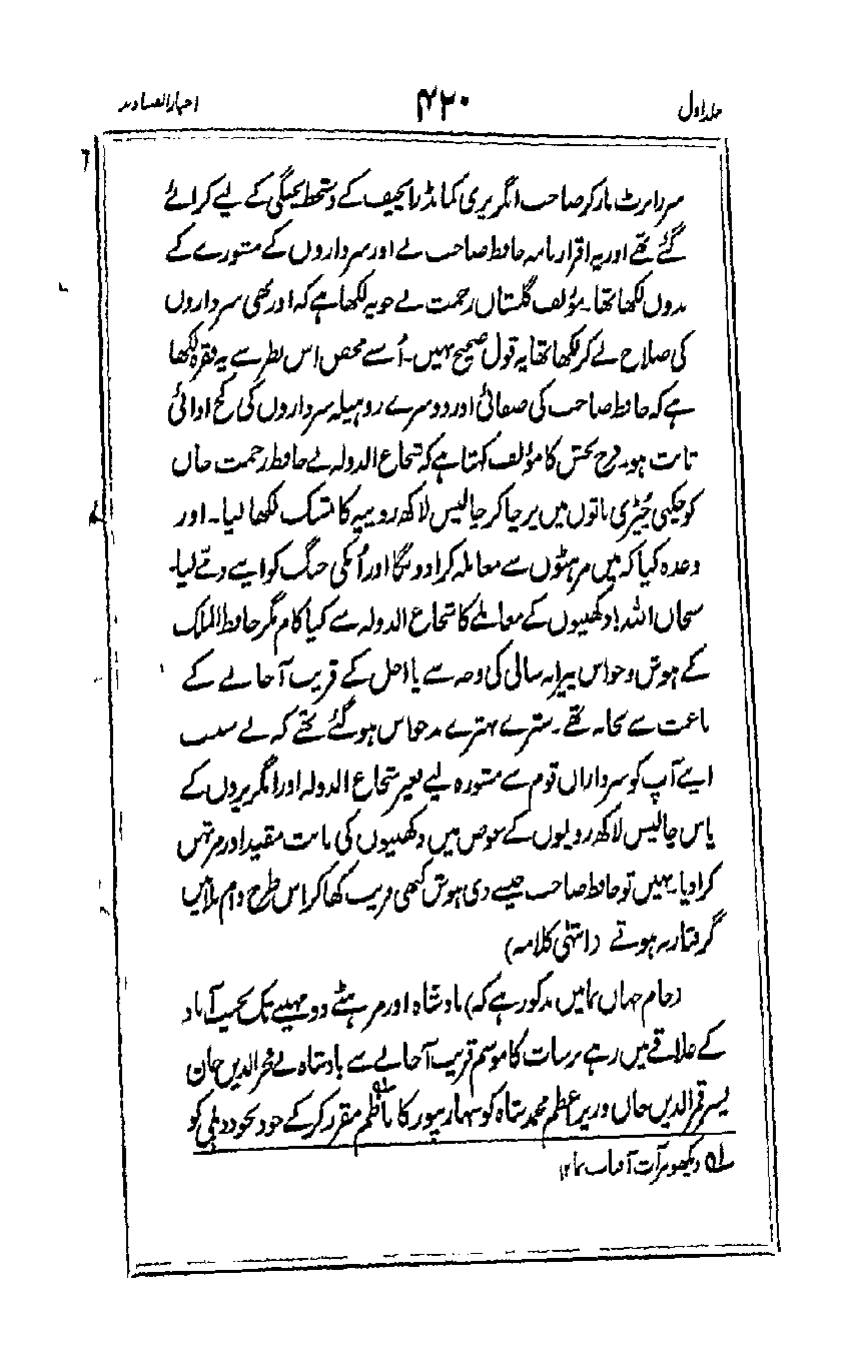 جلد اول
۴۲۰
اخبار الصنادید
سر رابرٹ بارکر صاحب انگریزی کمانڈر انچیف کے دستخط پختگی کے لیے کرائے
گئے تھے اور یہ اقرار نامہ حافظ صاحب نے اور سرداروں کے مشورے کے
بدون لکھا تھا۔ مؤلف گلستان رحمت نے جو یہ لکھا ہے کہ اور بھی سرداروں
کی صلاح لے کر لکھا تھا یہ قول صحیح نہیں۔ اُسے محض اس نظر سے یہ فقرہ لکھا
ہے کہ حافظ صاحب کی صفائی اور دوسرے روہیلہ سرداروں کی کج ادائی
ثابت ہو۔ فرح بخش کا مؤلف کہتا ہے کہ شجاع الدولہ نے حافظ رحمت خاں
کو چکنی چُپڑی باتوں میں پرچا کر چالیس لاکھ روپیہ کا تمسک لکھا لیا۔ اور
وعدہ کیا کہ میں مرہٹوں سے معاملہ کرا دونگا اور اُنکی جنگ کو اپنے ذمے لیا۔
سبحان اللہ! دکھنیوں کے معاملے کا شجاع الدولہ سے کیا کام مگر حافظ الملک
کے ہوش و حواس پیرانہ سالی کی وجہ سے یا اجل کے قریب آجانے کے
باعث سے بجا نہ تھے۔ سترے بہترے بدحواس ہو گئے تھے کہ بے سبب
اپنے آپ کو سرداران قوم سے مشورہ لیے بغیر شجاع الدولہ اور انگریزوں کے
پاس چالیس لاکھ روپیوں کے عوض میں دکھنیوں کی بابت مقید اور مرتہن
کرا دیا۔ نہیں تو حافظ صاحب جیسے ذی ہوش کبھی فریب کھا کر اس طرح دام بلا میں
گرفتار نہ ہوتے (انتہیٰ کلامہ)
(جام جہاں نما میں مذکور ہے کہ) بادشاہ اور مرہٹے دو مہینے تک نجیب آباد
کے علاقے میں رہے برسات کا موسم قریب آجانے سے بادشاہ نے فخر الدین خان
پسر قمر الدین خاں وزیر اعظم محمد شاہ کو سہارنپور کا ناظم ۱ھ مقرر کر کے خود بخود دہلی کو
۱ھ دیکھو مرآت آفتاب نما ۱۲